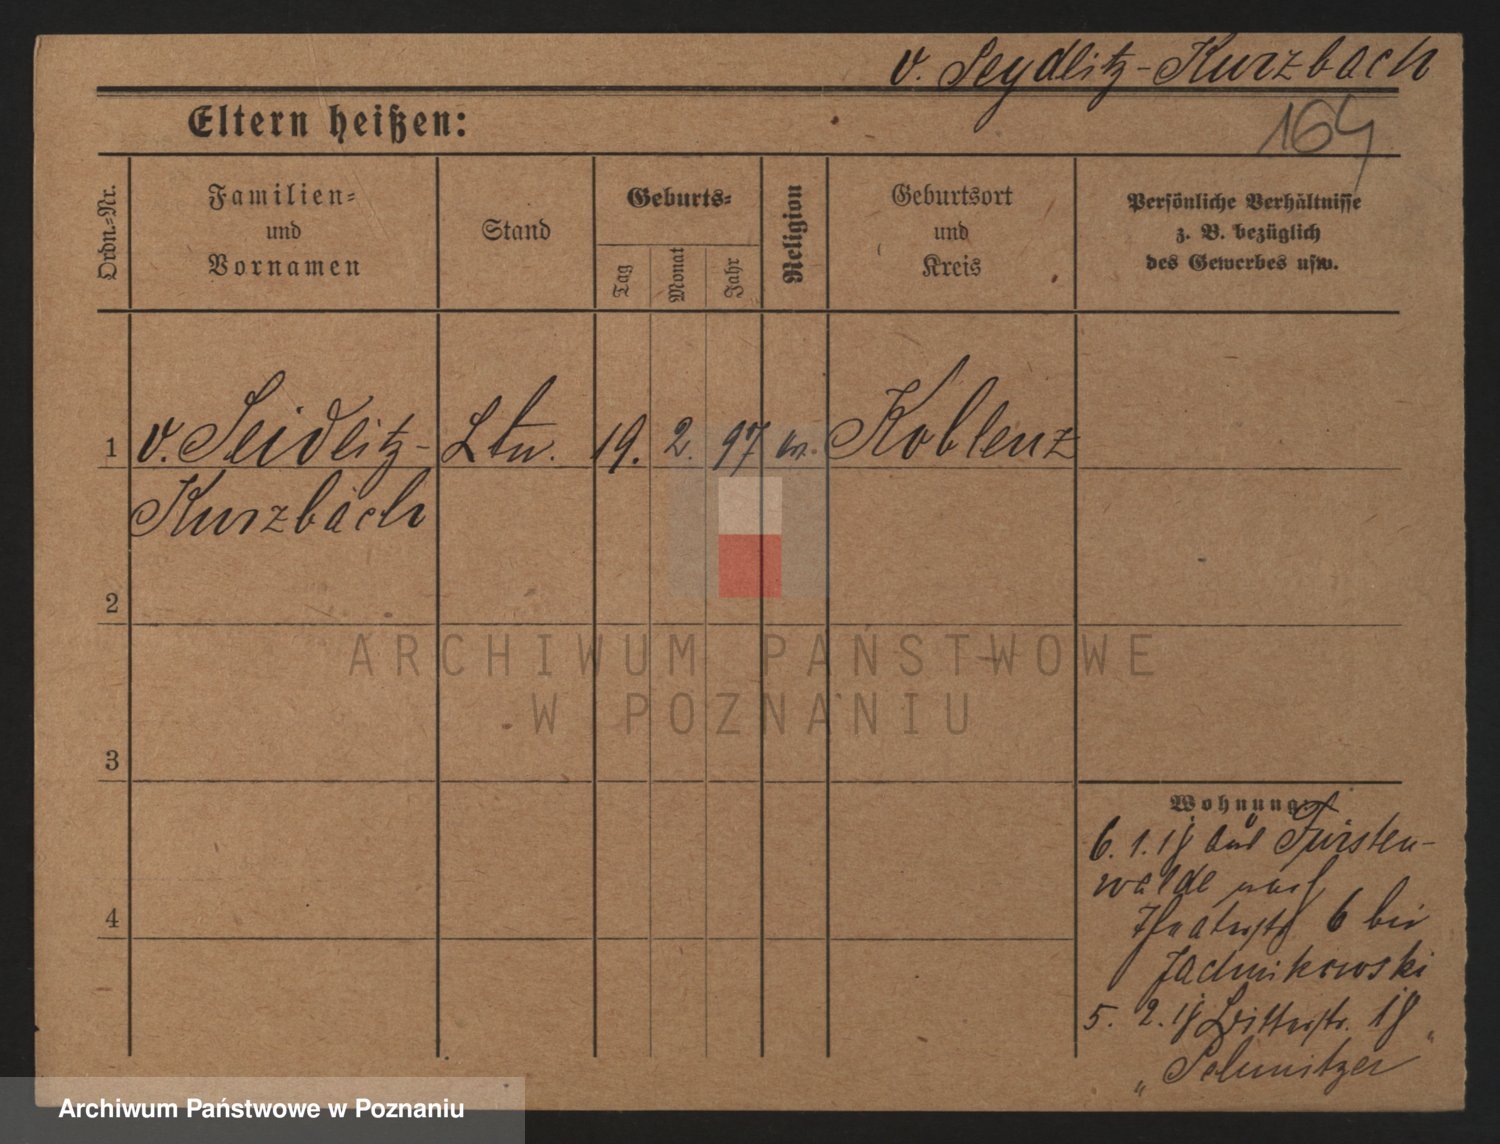 v. Seydlitz-Kurzbach
164
Eltern heißen:
Ordn.-Nr.
Familien-
und
Vornamen
Stand
Geburts-
Tag
Monat
Jahr
Religion
Geburtsort
und
Kreis
Persönliche Verhältnisse
z. B. bezüglich
des Gewerbes usw.
1 v. Seidlitz- Ltn. 19. 2. 97 ev. Koblenz
Kurzbach
2
3
4
ARCHIWUM PAŃSTWOWE
W POZNANIU
Wohnung:
6. 1. 18 aus Fürsten-
walde nach
Theaterstr 6 bei
5. 2. 18 Ritterstr. 18
" Schnitzer "
Archiwum Państwowe w Poznaniu